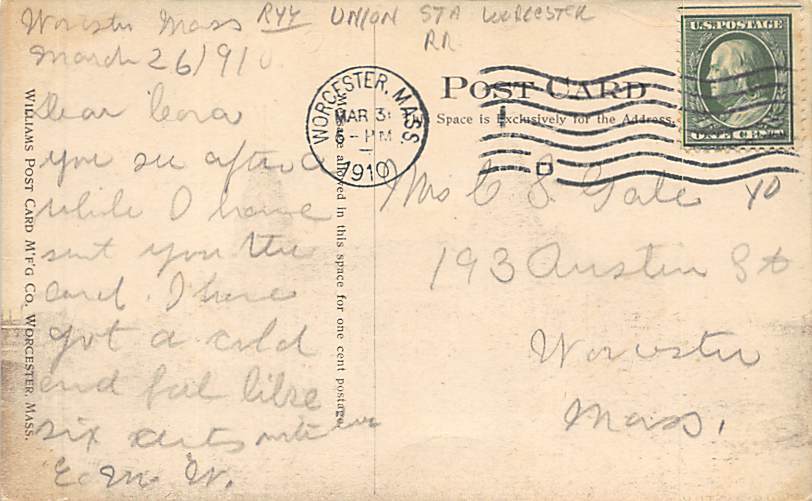 Worcester Mass
March 26/910
RYY UNION STA WORCESTER
RR
Dear Cora
you see after a
while I have
sent you the
card. I have
got a cold
and feel like
six cents
E. M. W.
WILLIAMS POST CARD M'F'G CO., WORCESTER, MASS.
Message allowed in this space for one cent postage.
WORCESTER, MASS.
MAR 3
6-PM
1910
POST CARD
Space is Exclusively for the Address.
U.S. POSTAGE
ONE CENT
Mrs C S Gale
193 Austin St
Worcester
Mass.